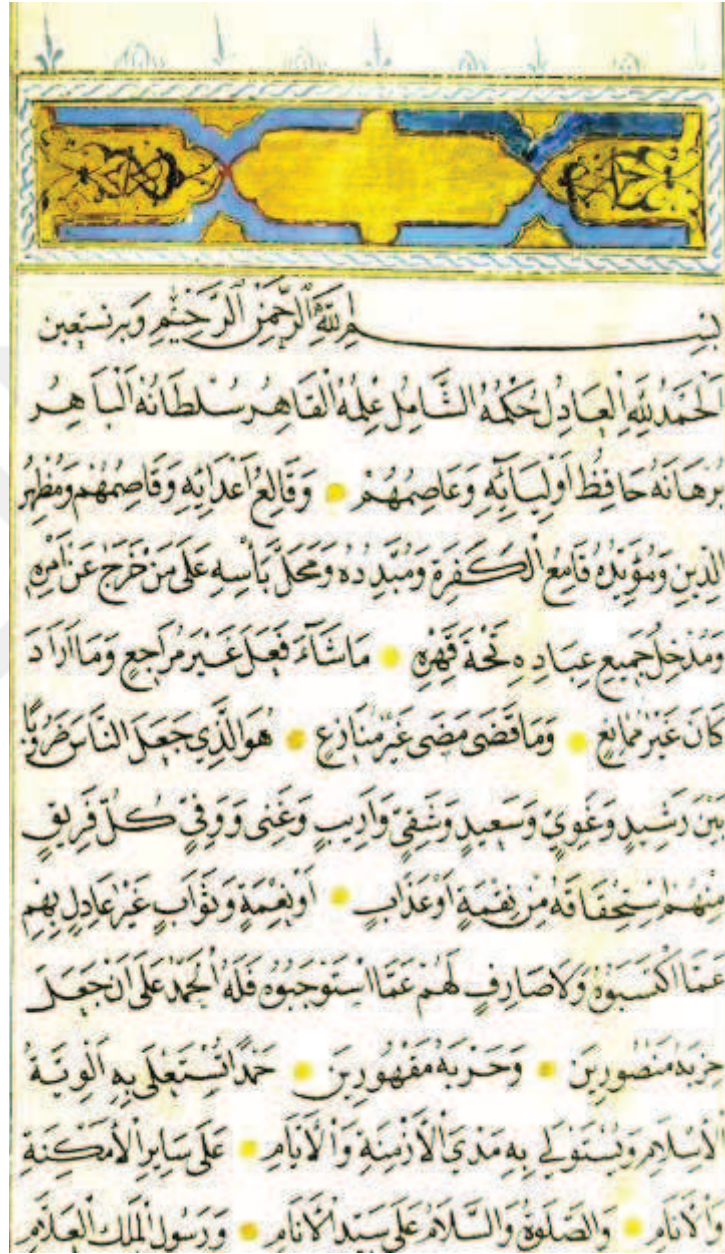 بِسْمِ اللَّهِ الرَّحْمَنِ الرَّحِيمِ وَبِهِ نَسْتَعِين
اَلْحَمْدُ لِلَّهِ الْعَادِلِ حُكْمُهُ الشَّامِلِ عِلْمُهُ الْقَاهِرِ سُلْطَانُهُ الْبَاهِرِ
بُرْهَانُهُ حَافِظِ اَوْلِيَآئِهِ وَعَاصِمِهُمْ وَقَالِعِ اَعْدَائِهِ وَقَاصِمِهُمْ وَمُظْهِرُ
الدِّينِ وَمُؤَيِّدُهُ قَامِعُ الْكَفَرَةِ وَمُبَدِّدُهُ وَمُحِلُّ بَأْسِهِ عَلَى مَنْ خَرَجَ عَنْ اَمْرِهِ
وَمُدْخِلُ جَمِيعِ عِبَادِهِ تَحْتَ قَهْرِهِ مَا شَآءَ فَعَلَ غَيْرَ مُرَاجِعٍ وَمَا اَرَادَ
كَانَ غَيْرَ مُمَانِعٍ وَمَا قَضَى مَضَى غَيْرَ مُنَازِعٍ هُوَ الَّذِي جَعَلَ النَّاسَ ضُرُوبًا
بَيْنَ رَشِيدٍ وَغَوِيٍّ وَسَعِيدٍ وَشَقِيٍّ وَاَرِيبٍ وَغَنِى وَوَفِيِّ كُلَّ فَرِيقٍ
مِنْهُمْ اِسْتِحْقَاقَهُ مِنْ نِقْمَةٍ اَوْ عَذَابٍ اَوْ نِعْمَةٍ وَثَوَابٍ غَيْرَ عَادِلٍ بِهِمْ
عَمَّا اكْتَسَبُوهُ وَلَا صَارِفٍ لَهُمْ عَمَّا اسْتَوْجَبُوهُ فَلَهُ الْحَمْدُ عَلَى اَنْ جَعَلَ
حِزْبَهُ مَنْصُورِينَ وَحَرْبَهُ مَقْهُورِينَ حَمْدًا تُسْتَعْلَى بِهِ اَلْوِيَةُ
الْاِسْلَامِ وَيُسْتَوْلَي بِهِ مَدَىَ الْاَزْمِنَةِ وَالْاَيَّامِ عَلَى سَايِرِ الْاَمْكِنَةِ
وَالْاَنَامِ وَالصَّلَوةُ وَالسَّلَامُ عَلَى سَيِّدِ الْاَنَامِ وَرَسُولِ الْمَلِكِ الْعَلَّامِ